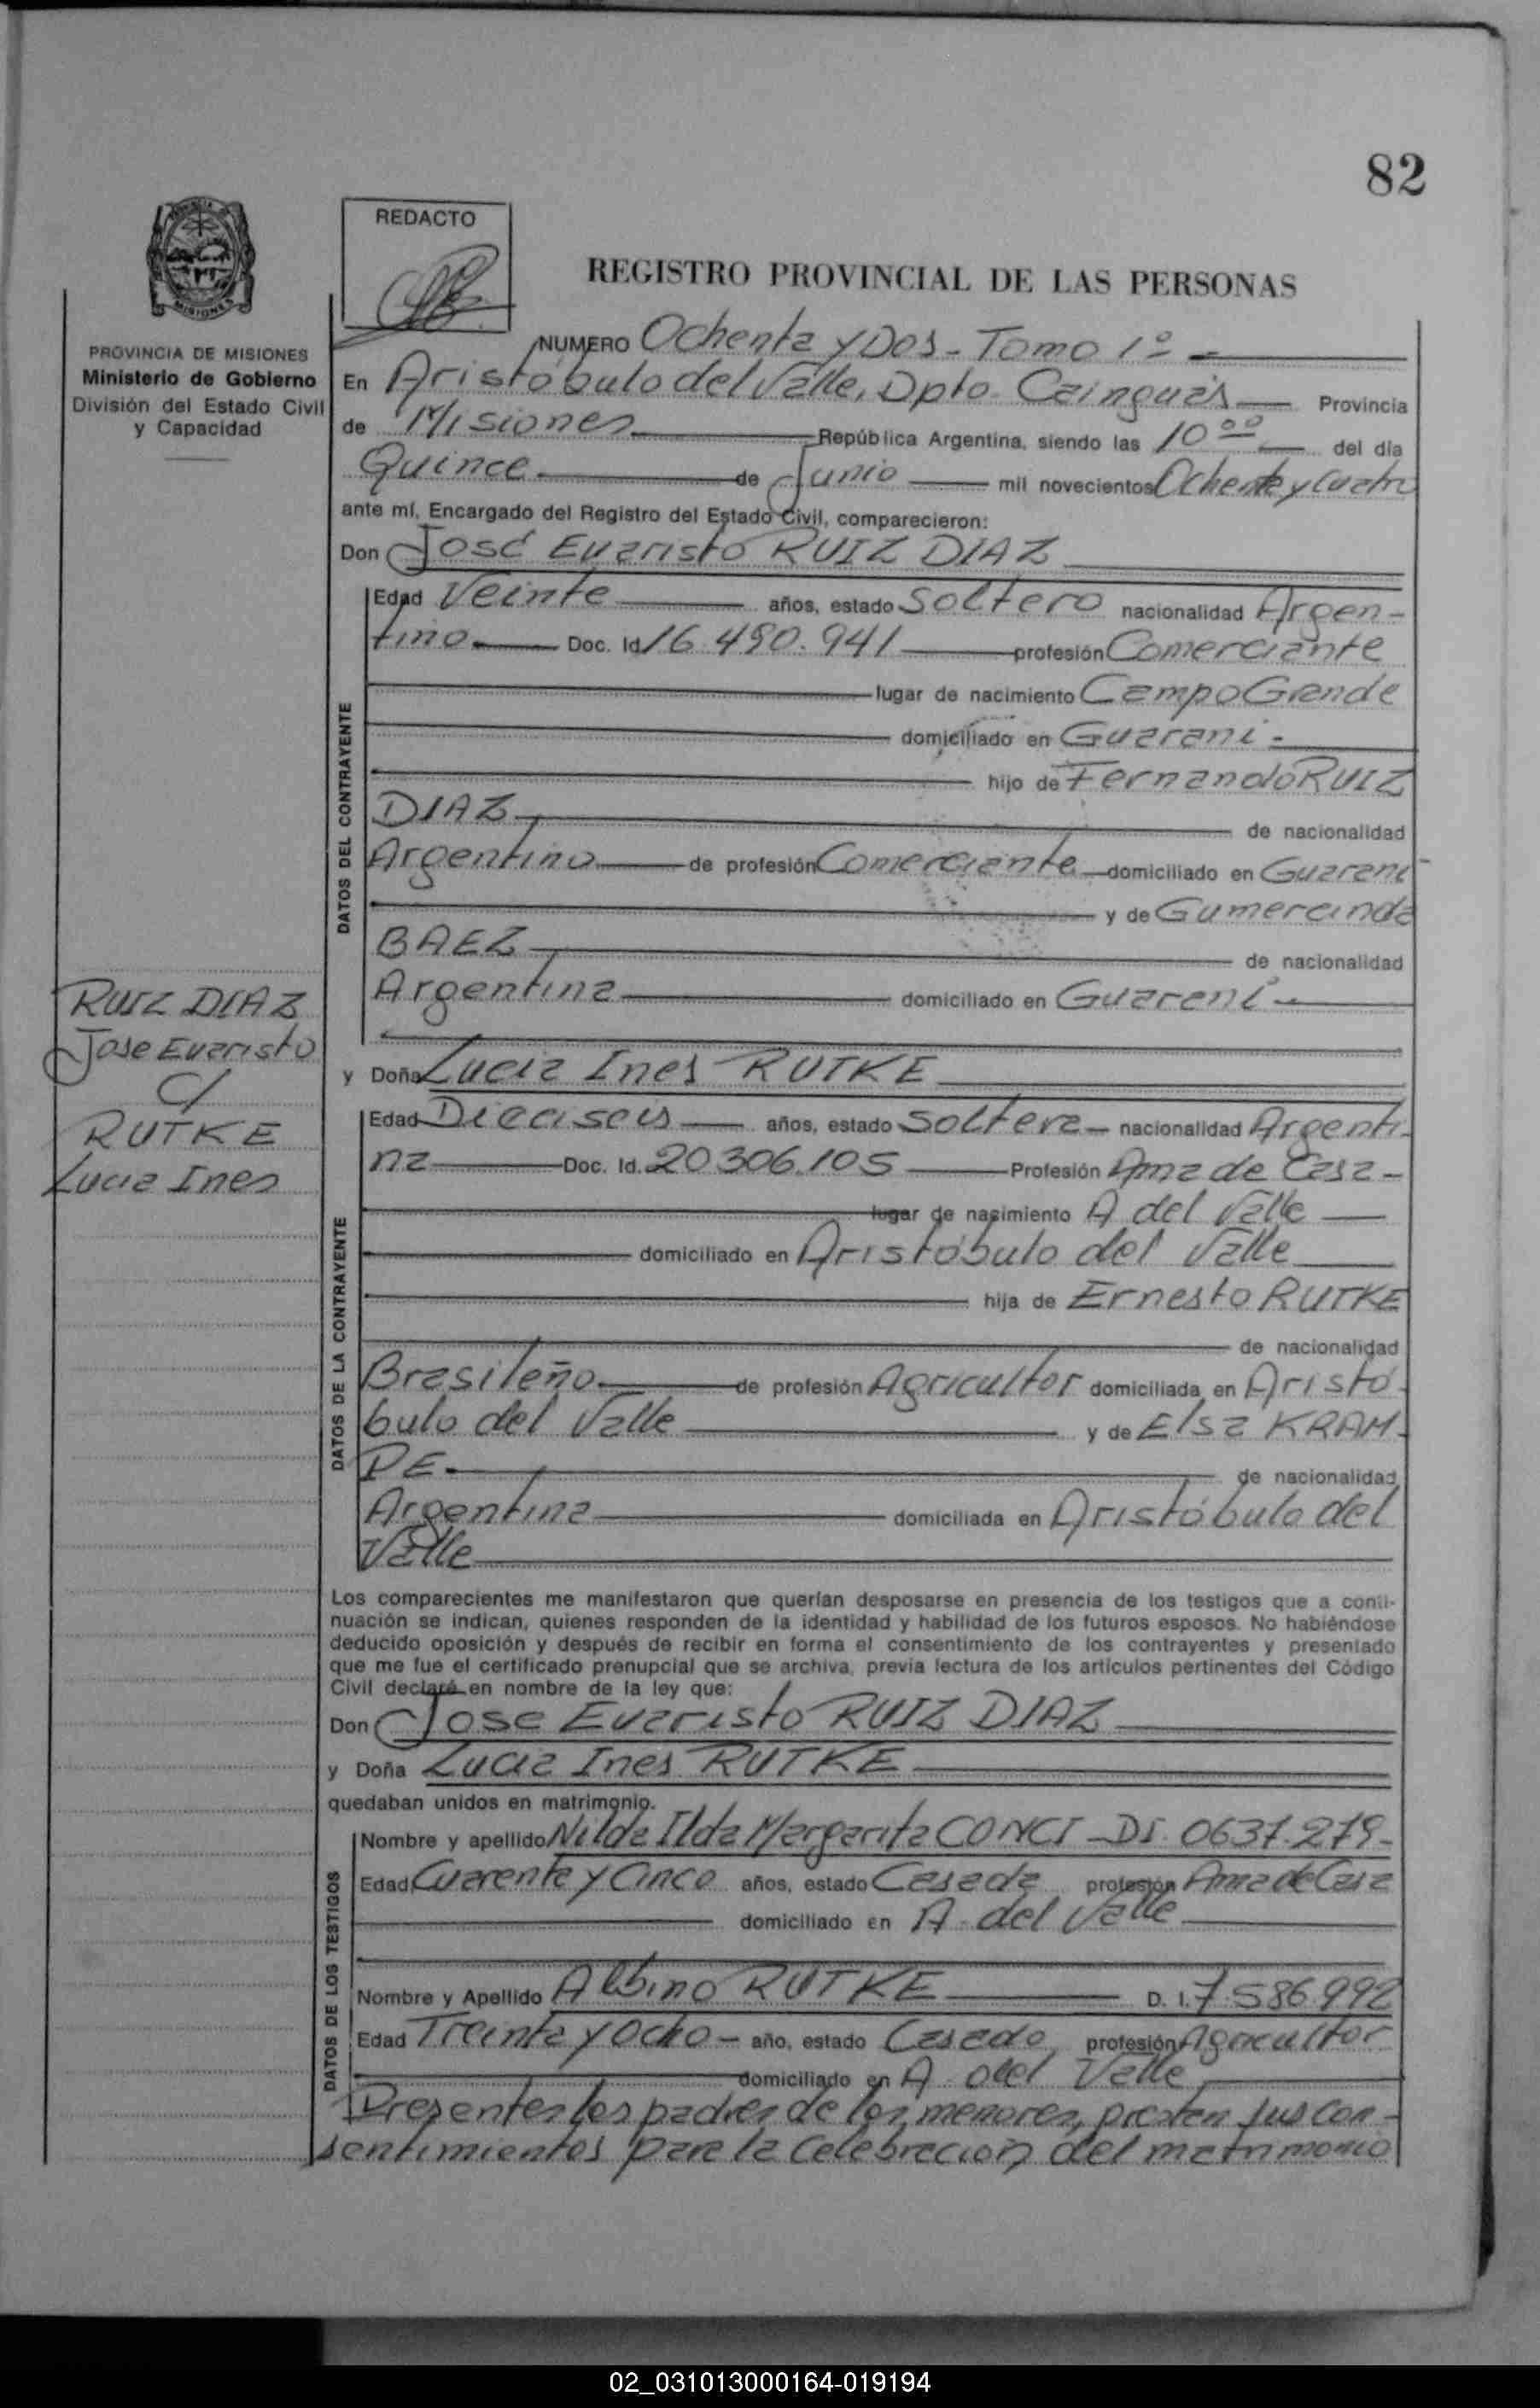 82
REDACTO
REGISTRO PROVINCIAL DE LAS PERSONAS
MISIONES
PROVINCIA DE MISIONES
Ministerio de Gobierno
División del Estado Civil
y Capacidad
NUMERO Ochenta y Dos - Tomo 1º -
En Aristóbulo del Valle, Dpto. Cainguás Provincia
de Misiones República Argentina, siendo las 10 00 del día
Quince de Junio mil novecientos Ochenta y Cuatro
ante mí, Encargado del Registro del Estado Civil, comparecieron:
Don José Evaristo RUIZ DIAZ
DATOS DEL CONTRAYENTE
Edad Veinte años, estado Soltero nacionalidad Argen-
tino Doc. Id. 16.490.941 profesión Comerciante
lugar de nacimiento Campo Grande
domiciliado en Guarani -
hijo de Fernando RUIZ
DIAZ de nacionalidad
Argentino de profesión Comerciante domiciliado en Guarani
y de Gumercinda
BAEZ de nacionalidad
Argentina domiciliado en Guarani
RUIZ DIAZ
Jose Evaristo
C/
RUTKE
Lucia Ines
y Doña Lucia Ines RUTKE
DATOS DE LA CONTRAYENTE
Edad Dieciseis años, estado Soltera nacionalidad Argenti-
na Doc. Id. 20.306.105 Profesión Ama de Casa -
lugar de nacimiento A del Valle
domiciliado en Aristóbulo del Valle
hija de Ernesto RUTKE
de nacionalidad
Brasileño de profesión Agricultor domiciliada en Aristó-
bulo del Valle y de Elsa KRAM-
PE de nacionalidad
Argentina domiciliada en Aristóbulo del
Valle
Los comparecientes me manifestaron que querían desposarse en presencia de los testigos que a conti-
nuación se indican, quienes responden de la identidad y habilidad de los futuros esposos. No habiéndose
deducido oposición y después de recibir en forma el consentimiento de los contrayentes y presentado
que me fue el certificado prenupcial que se archiva, previa lectura de los artículos pertinentes del Código
Civil declaré en nombre de la ley que:
Don Jose Evaristo RUIZ DIAZ
y Doña Lucia Ines RUTKE
quedaban unidos en matrimonio.
DATOS DE LOS TESTIGOS
Nombre y apellido Nilda Ilda Margarita CONCI - DI. 0637.279-
Edad Cuarenta y Cinco años, estado Casada profesión Ama de Casa
domiciliado en A. del Valle
Nombre y Apellido Albino RUTKE D. I. 7.586.992
Edad Treinta y Ocho - año, estado Casado profesión Agricultor
domiciliado en A. del Valle
Presentes los padres de los menores, prestan sus con-
sentimientos para la celebracion del matrimonio
02_031013000164-019194